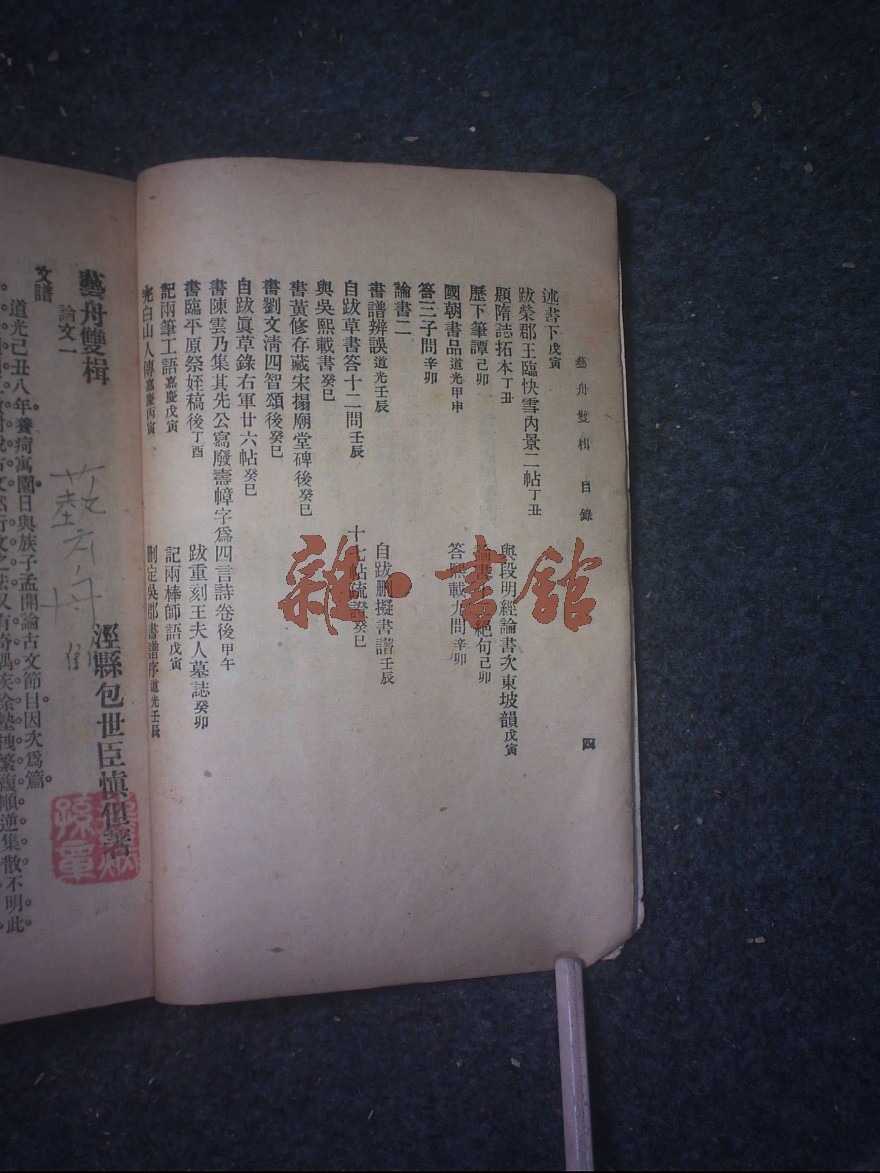 藝舟雙楫 目錄
四
述書下戊寅
跋榮郡王臨快雪內景二帖丁丑
與段明經論書次東坡韻戊寅
題隋誌拓本丁丑
歷下筆譚己卯
論書十二絕句己卯
國朝書品道光甲申
答熙載九問辛卯
答三子問辛卯
論書二
書譜辨誤道光壬辰
自跋刪擬書譜壬辰
自跋草書答十二問壬辰
十七帖疏證癸巳
與吳熙載書癸巳
書黃修存藏宋搨廟堂碑後癸巳
書劉文清四智頌後癸巳
自跋眞草錄右軍廿六帖癸巳
書陳雲乃集其先公寫廢壽幛字爲四言詩卷後甲午
書臨平原祭姪稿後丁酉
跋重刻王夫人墓誌癸卯
記兩筆工語嘉慶戊寅
記兩棒師語戊寅
完白山人傳嘉慶丙寅
刪定吳郡書譜序道光壬辰
藝舟雙楫
涇縣包世臣愼伯著
論文一
文譜
道光己丑八年養疴寓園日與族子孟開論古文節目因次爲篇
雜·書館